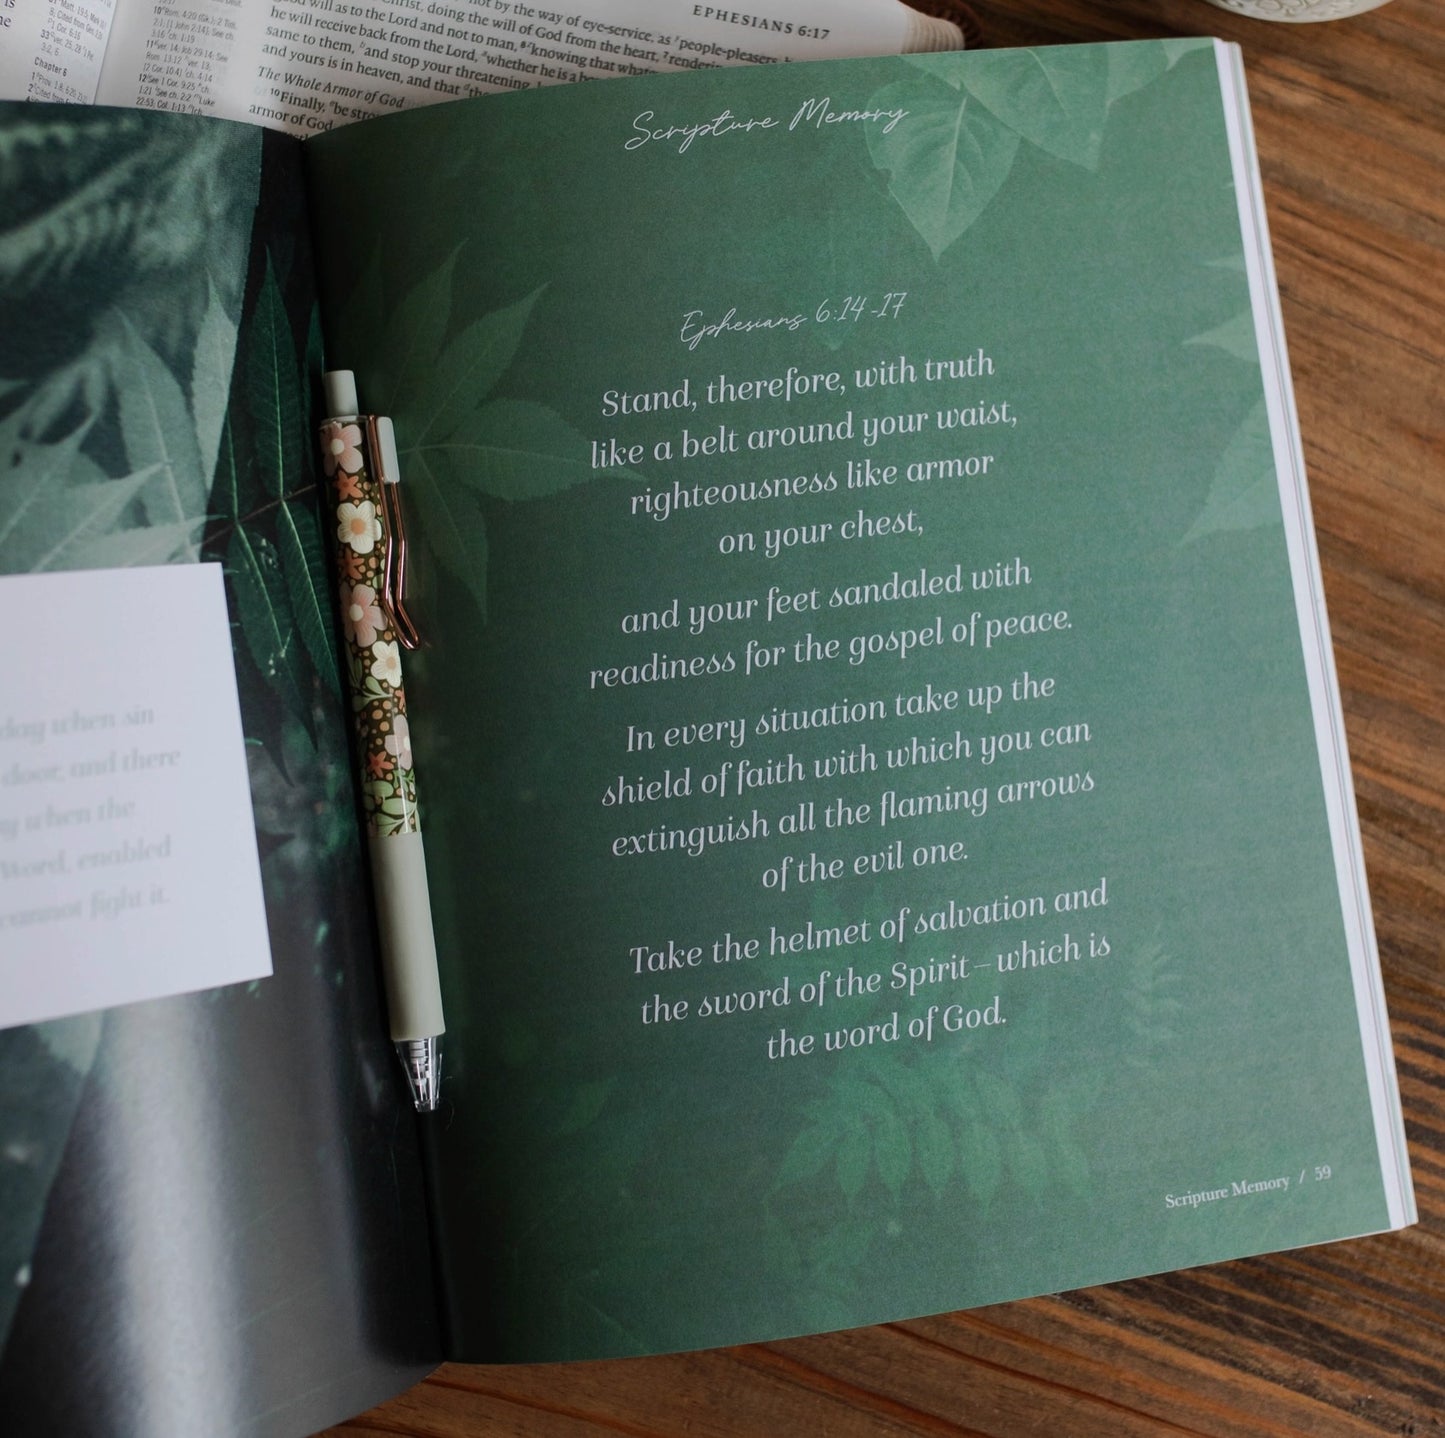 EPHESIANS 6:17
not by the way of eye-service, as people-pleasers,
doing the will of God from the heart,
good will as to the Lord and not to man, knowing that
he will receive back from the Lord, whether he is a
same to them, and stop your threatening,
and yours is in heaven, and that
The Whole Armor of God
10 Finally, be
armor of God
Chapter 6
Scripture Memory
Ephesians 6:14-17
Stand, therefore, with truth
like a belt around your waist,
righteousness like armor
on your chest,
and your feet sandaled with
readiness for the gospel of peace.
In every situation take up the
shield of faith with which you can
extinguish all the flaming arrows
of the evil one.
Take the helmet of salvation and
the sword of the Spirit—which is
the word of God.
Scripture Memory / 59
day when sin
door, and there
when the
Word, enabled
cannot fight it.